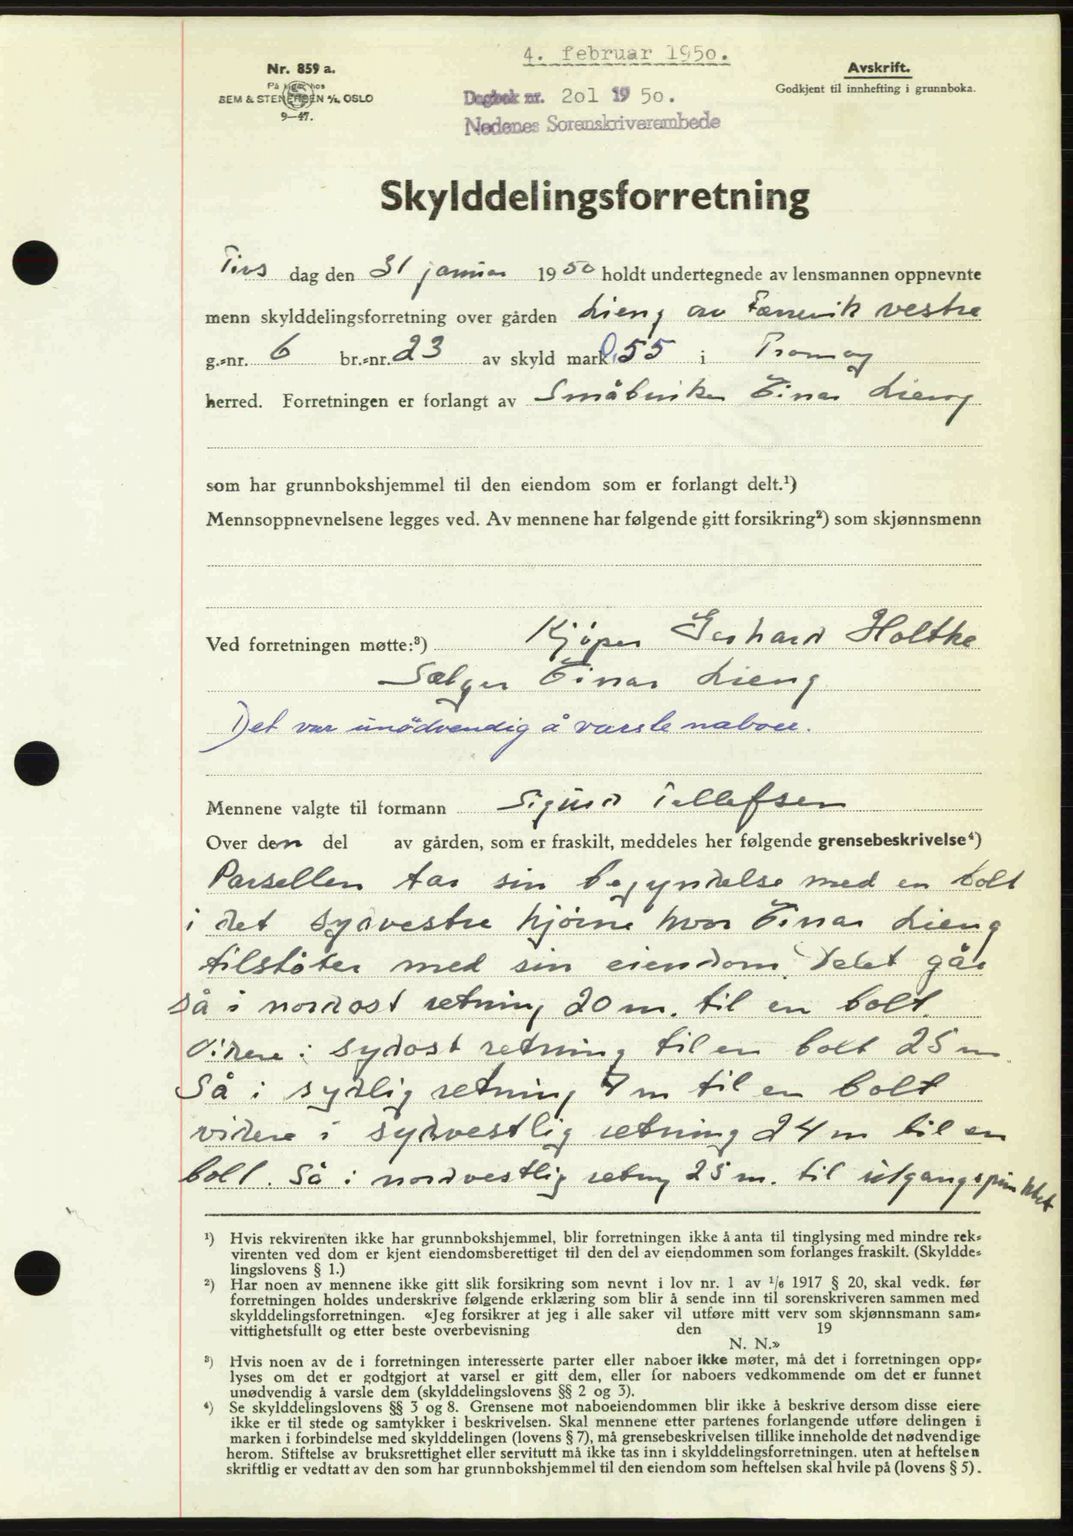 4. februar 1950.
Nr. 859 a.
På lager hos
SEM & STENERSEN A/S, OSLO
9—47.
Dagbok nr. 201 19 50.
Nedenes Sorenskriverembede
Avskrift.
Godkjent til innhefting i grunnboka.
Skylddelingsforretning
Tirs dag den 31 januar 1950 holdt undertegnede av lensmannen oppnevnte
menn skylddelingsforretning over gården Lieng av Færrevik vestre
g.-nr. 6 br.-nr. 23 av skyld mark 0,55 i Tromøy
herred. Forretningen er forlangt av Småbruker Einar Lieng
som har grunnbokshjemmel til den eiendom som er forlangt delt.¹)
Mennsoppnevnelsene legges ved. Av mennene har følgende gitt forsikring²) som skjønnsmenn
Ved forretningen møtte:³) Kjøper Gerhard Holtke
Sælger Einar Lieng
Det var unödvendig å varsle naboer.
Mennene valgte til formann Sigurd Tellefsen
Over den del av gården, som er fraskilt, meddeles her følgende grensebeskrivelse⁴)
Parsellen tar sin begyndelse med en bolt
i det sydvestre hjørne hvor Einar Lieng
tilstøter med sin eiendom. Delet går
så i nordost retning 20 m. til en bolt.
Videre i sydost retning til en bolt 25 m.
Så i sydlig retning 7 m til en bolt
videre i sydvestlig retning 24 m til en
bolt. Så i nordvestlig retng 25 m. til utgangspunktet
¹) Hvis rekvirenten ikke har grunnbokshjemmel, blir forretningen ikke å anta til tinglysing med mindre rek-
virenten ved dom er kjent eiendomsberettiget til den del av eiendommen som forlanges fraskilt. (Skyldde-
lingslovens § 1.)
²) Har noen av mennene ikke gitt slik forsikring som nevnt i lov nr. 1 av 1/6 1917 § 20, skal vedk. før
forretningen holdes underskrive følgende erklæring som blir å sende inn til sorenskriveren sammen med
skylddelingsforretningen. «Jeg forsikrer at jeg i alle saker vil utføre mitt verv som skjønnsmann sam-
vittighetsfullt og etter beste overbevisning den 19
N. N.»
³) Hvis noen av de i forretningen interesserte parter eller naboer ikke møter, må det i forretningen opp-
lyses om det er godtgjort at varsel er gitt dem, eller for naboers vedkommende om det er funnet
unødvendig å varsle dem (skylddelingslovens §§ 2 og 3).
⁴) Se skylddelingslovens §§ 3 og 8. Grensene mot naboeiendommen blir ikke å beskrive dersom disse eiere
ikke er til stede og samtykker i beskrivelsen. Skal mennene etter partenes forlangende utføre delingen i
marken i forbindelse med skylddelingen (lovens § 7), må grensebeskrivelsen tillike inneholde det nødvendige
herom. Stiftelse av bruksrettighet eller servitutt må ikke tas inn i skylddelingsforretningen, uten at heftelsen
skriftlig er vedtatt av den som har grunnbokshjemmel til den eiendom som heftelsen skal hvile på (lovens § 5).